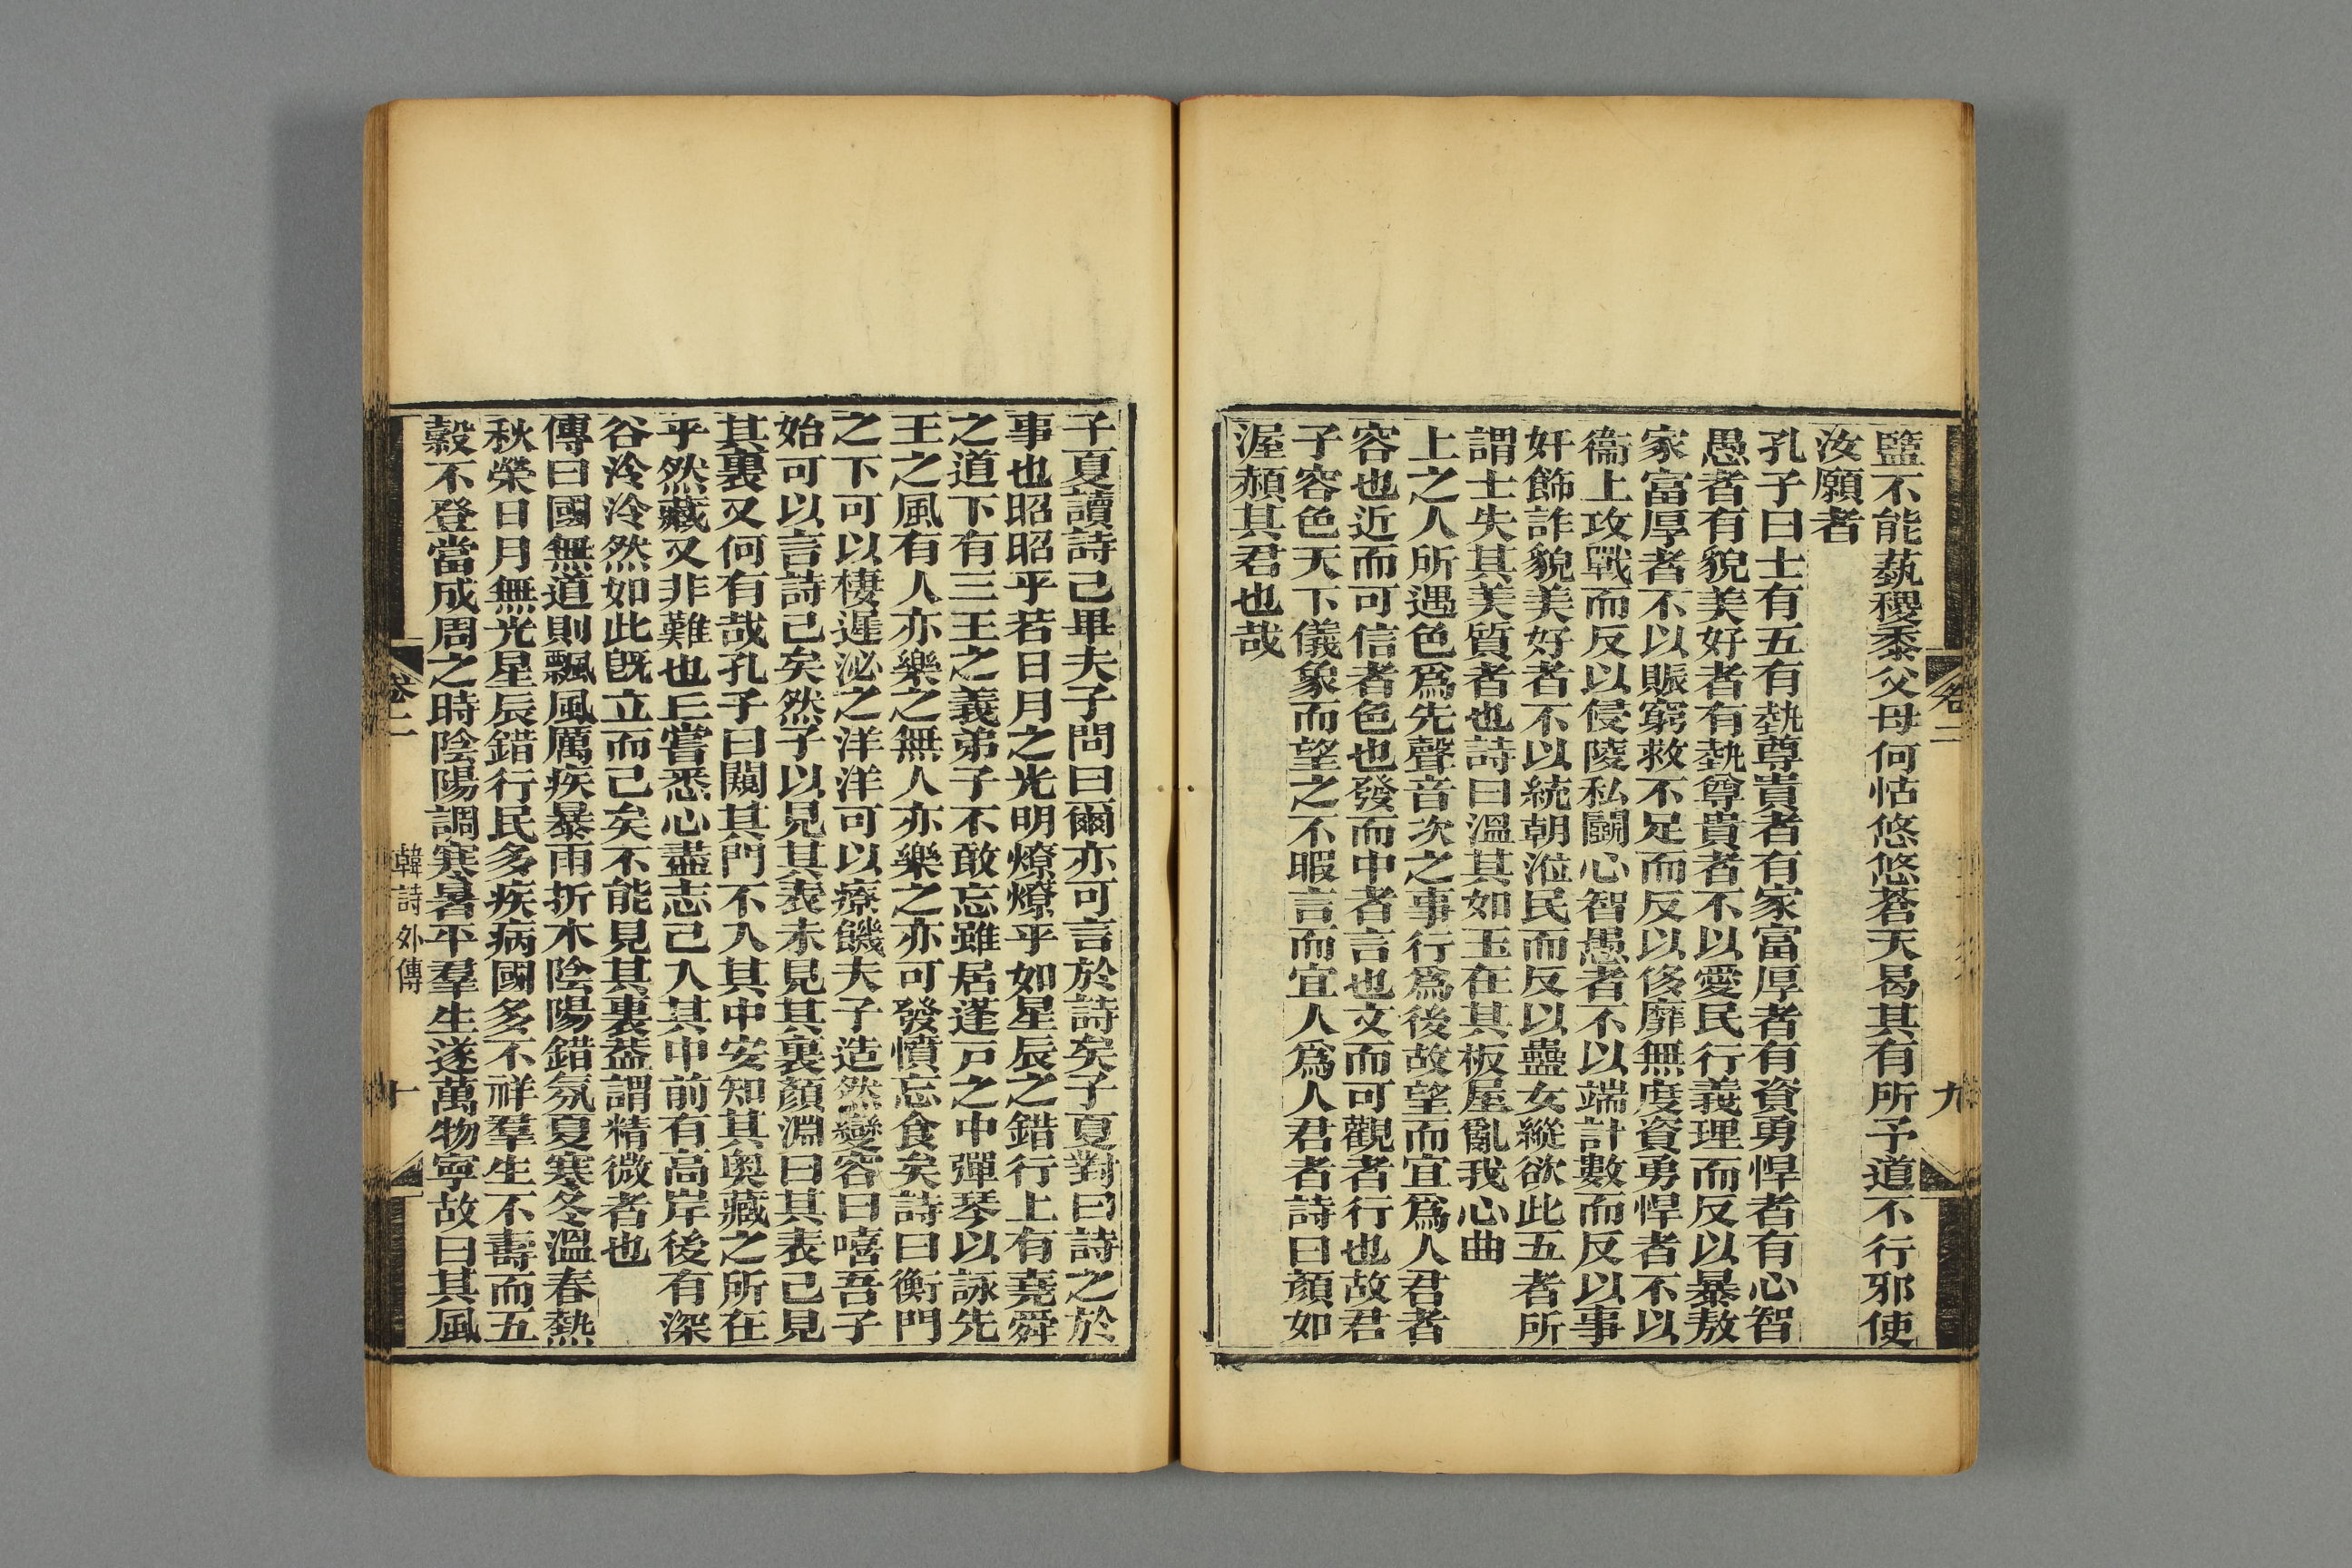 盬不能蓺稷黍父母何怙悠悠蒼天曷其有所予道不行邪使
汝願者
孔子曰士有五有埶尊貴者有家富厚者有資勇悍者有心智
愚者有貌美好者有埶尊貴者不以愛民行義理而反以暴敖
家富厚者不以賑窮救不足而反以侈靡無度資勇悍者不以
衞上攻戰而反以侵陵私鬭心智愚者不以端計數而反以事
奸飾詐貌美好者不以統朝涖民而反以蠱女縱欲此五者所
謂士失其美質者也詩曰溫其如玉在其板屋亂我心曲
上之人所遇色爲先聲音次之事行爲後故望而宜爲人君者
容也近而可信者色也發而中者言也文而可觀者行也故君
子容色天下儀象而望之不暇言而宜人爲人君者詩曰顏如
渥赬其君也哉
卷二
九
子夏讀詩已畢夫子問曰爾亦可言於詩矣子夏對曰詩之於
事也昭昭乎若日月之光明燎燎乎如星辰之錯行上有堯舜
之道下有三王之義弟子不敢忘雖居蓬戸之中彈琴以詠先
王之風有人亦樂之無人亦樂之亦可發憤忘食矣詩曰衡門
之下可以棲遲泌之洋洋可以療饑夫子造然變容曰嘻吾子
始可以言詩已矣然子以見其表未見其裏顏淵曰其表已見
其裏又何有哉孔子曰闚其門不入其中安知其奧藏之所在
乎然藏又非難也丘嘗悉心盡志已入其中前有高岸後有深
谷泠泠然如此旣立而已矣不能見其裏葢謂精微者也
傳曰國無道則飄風厲疾暴雨折木陰陽錯氛夏寒冬溫春熱
秋榮日月無光星辰錯行民多疾病國多不祥羣生不壽而五
穀不登當成周之時陰陽調寒暑平羣生遂萬物寧故曰其風
卷二
韓詩外傳
十